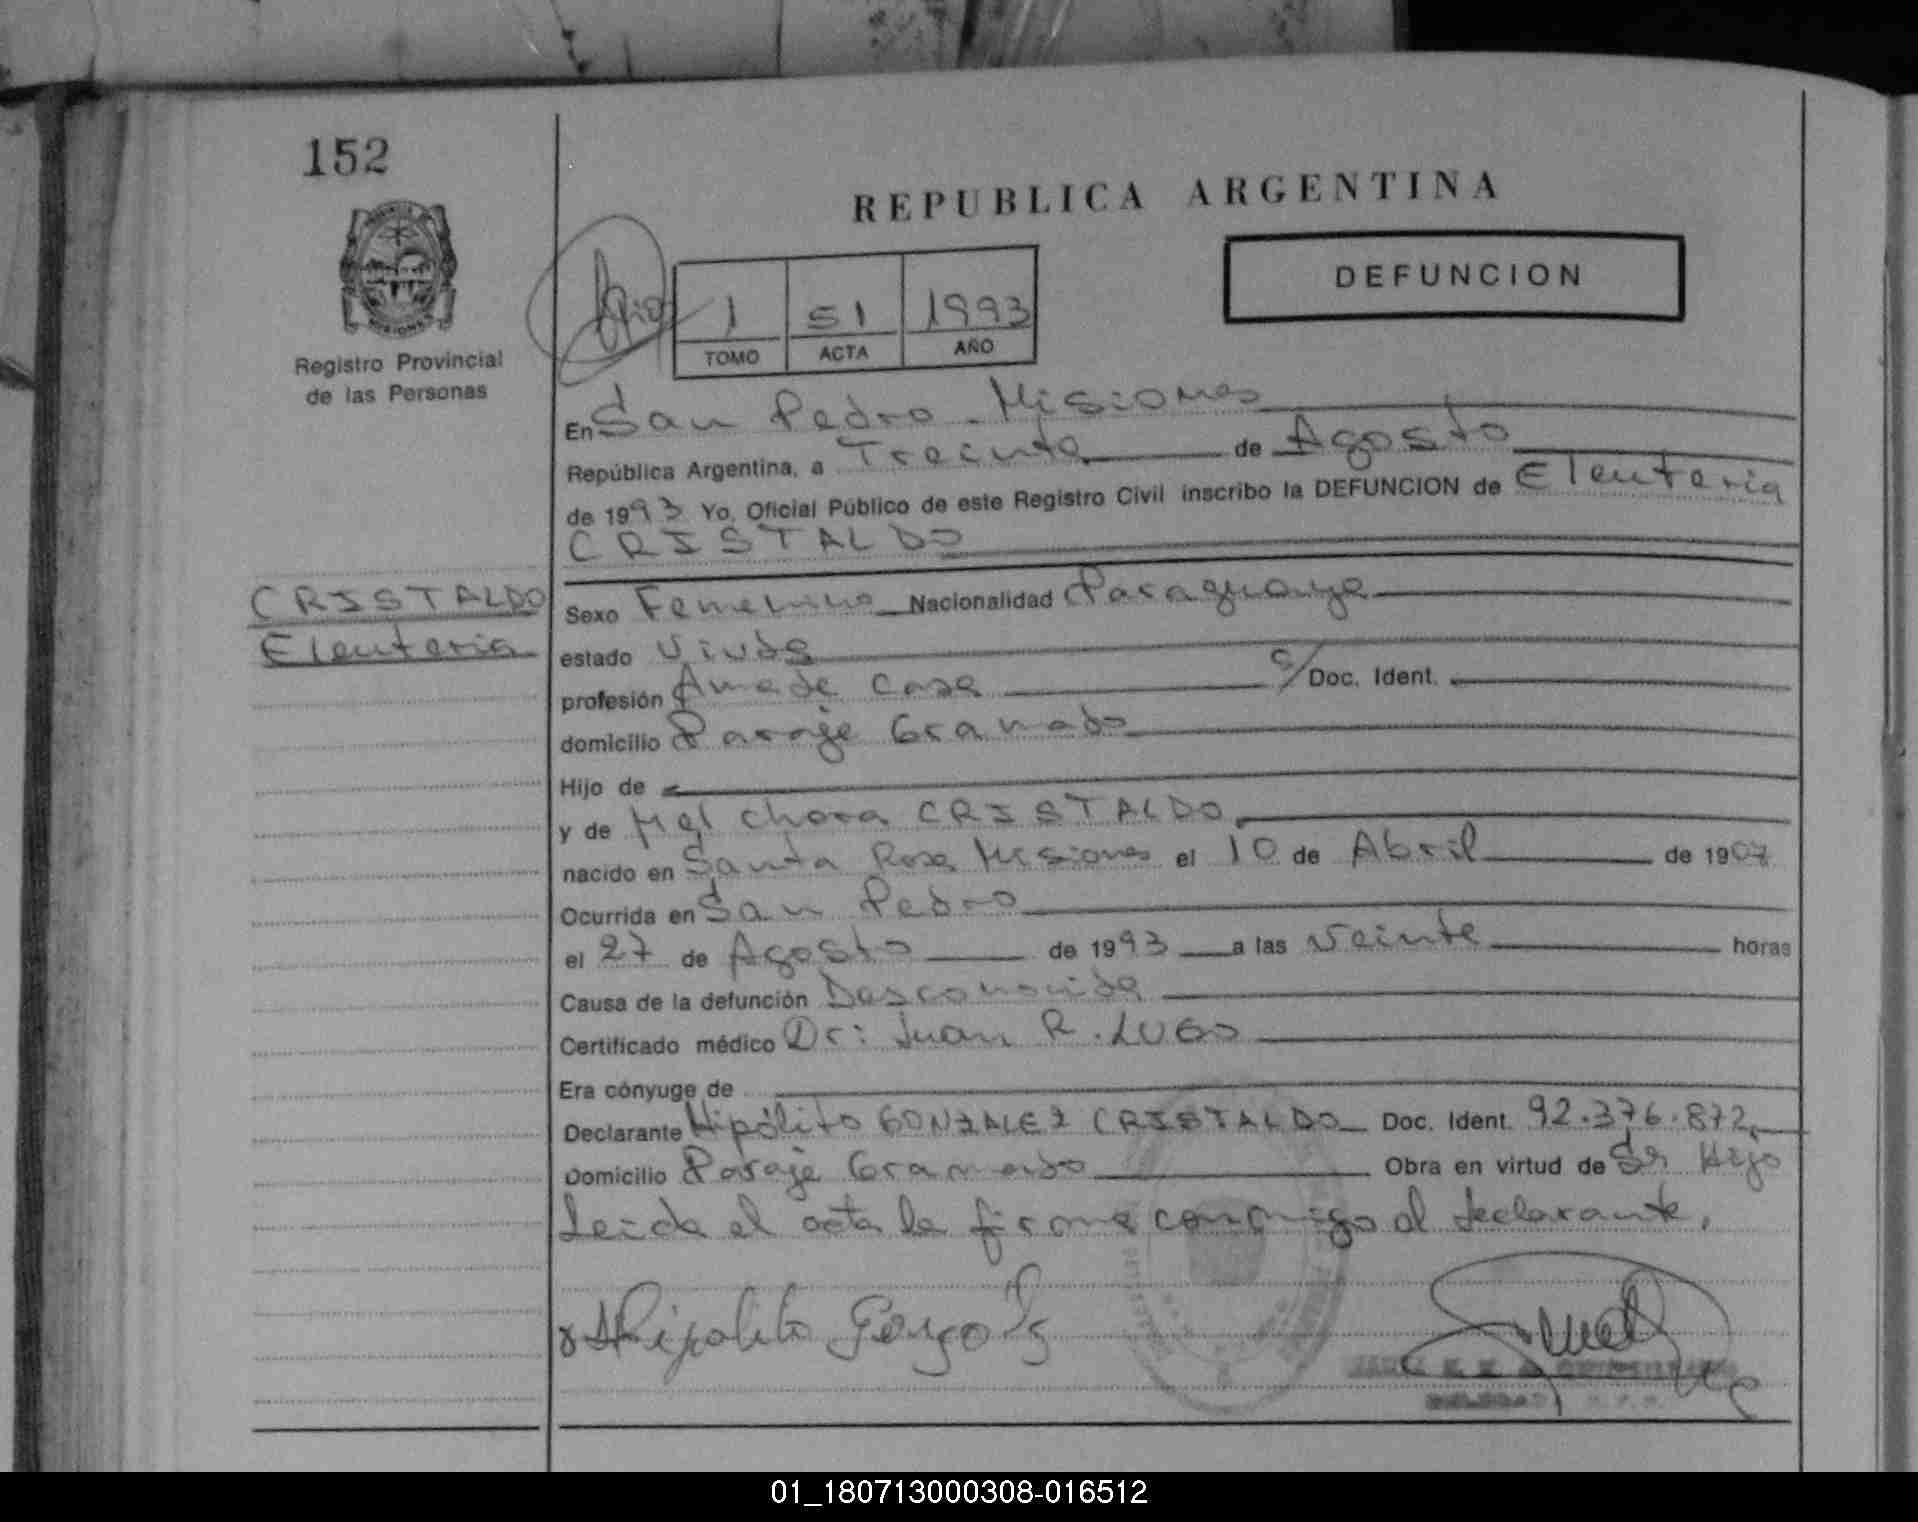 152
REPUBLICA ARGENTINA
DEFUNCION
1 51 1993
TOMO ACTA AÑO
Registro Provincial
de las Personas
En San Pedro - Misiones
República Argentina, a Treinta de Agosto
de 1993 Yo, Oficial Público de este Registro Civil inscribo la DEFUNCION de Eleuteria
CRISTALDO
CRISTALDO
Eleuteria
Sexo Femenino Nacionalidad Paraguaya
estado Viuda
profesión Ama de Casa S/Doc. Ident.
domicilio Paraje Gramado
Hijo de
y de Mel chora CRISTALDO
nacido en Santa Rosa Misiones el 10 de Abril de 1907
Ocurrida en San Pedro
el 27 de Agosto de 1993 a las Veinte horas
Causa de la defunción Desconocida
Certificado médico Dr: Juan R. LUGO
Era cónyuge de
Declarante Hipólito GONZALEZ CRISTALDO Doc. Ident. 92.376.872
Domicilio Paraje Gramado Obra en virtud de Ser Hijo
Leida el acta la firma conmigo el declarante.
Hipolito Gonzalez
01_180713000308-016512